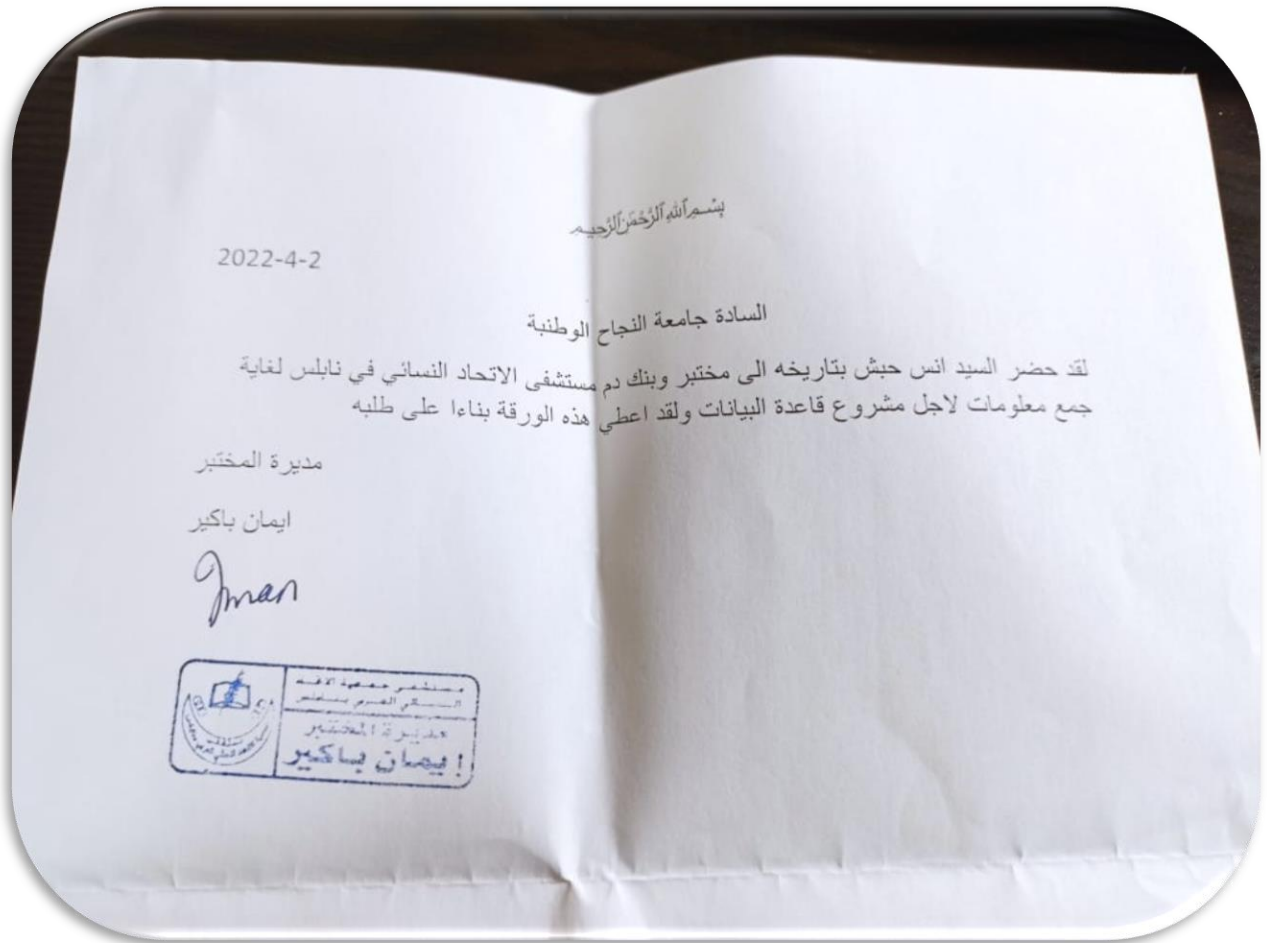 بسم الله الرحمن الرحيم
2022-4-2
السادة جامعة النجاح الوطنية
لقد حضر السيد انس حبش بتاريخه الى مختبر وبنك دم مستشفى الاتحاد النسائي في نابلس لغاية
جمع معلومات لاجل مشروع قاعدة البيانات ولقد اعطي هذه الورقة بناءا على طلبه
مديرة المختبر
ايمان باكير
Iman
مستشفى جمعية
النسائي العربي
مديرة المختبر
إيمان باكير